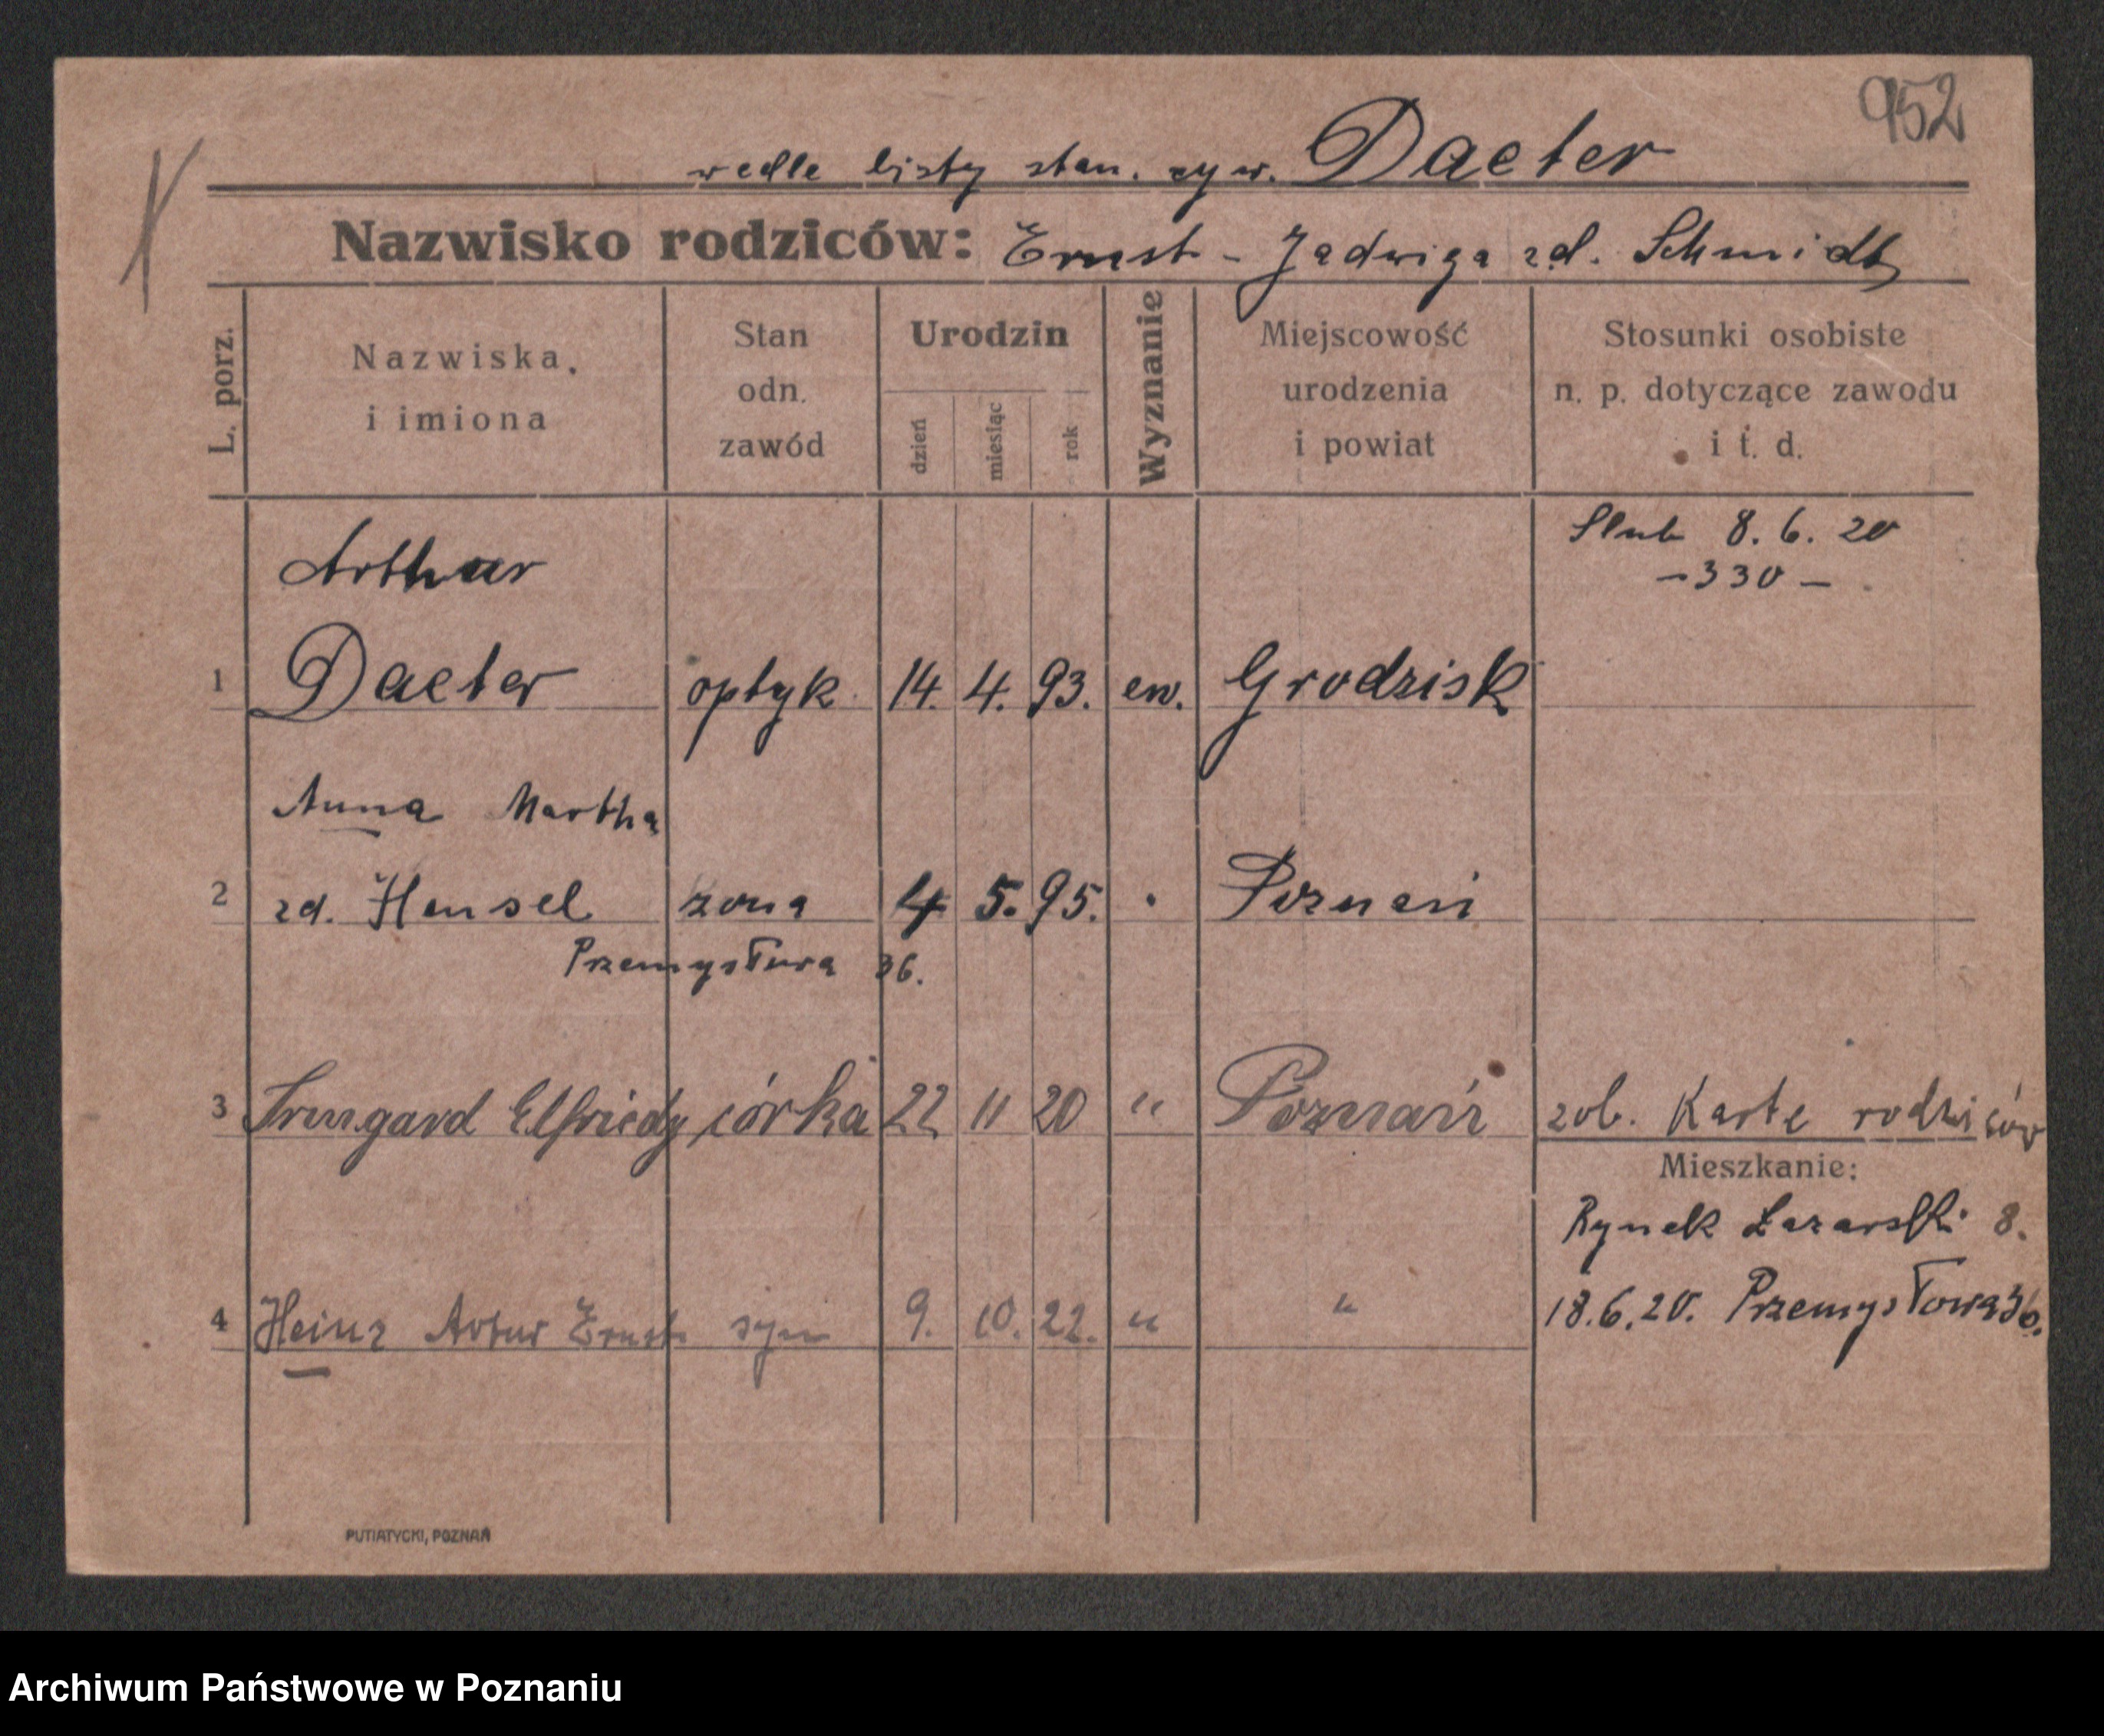 952
wedle listy stan. cyw. Daeter
Nazwisko rodziców: Ernst - Jadwiga zd. Schmidt
L. porz.
Nazwiska,
i imiona
Stan
odn.
zawód
Urodzin
dzień
miesiąc
rok
Wyznanie
Miejscowość
urodzenia
i powiat
Stosunki osobiste
n. p. dotyczące zawodu
i t. d.
Slub 8. 6. 20
- 330 -
Arthur
1 Daeter optyk 14. 4. 93. ew. Grodzisk
Anna Martha
2 zd. Hensel żona 4 5. 95. " Poznań
Przemysłowa 36.
3 Irmgard Elfriedy córka 22 11 20 " Poznań zob. Kartę rodziców
Mieszkanie:
Rynek Łazarski 8.
18.6.20. Przemysłowa 36.
4 Heinz Artur Ernst syn 9. 10. 22. " "
PUTIATYCKI, POZNAŃ
Archiwum Państwowe w Poznaniu